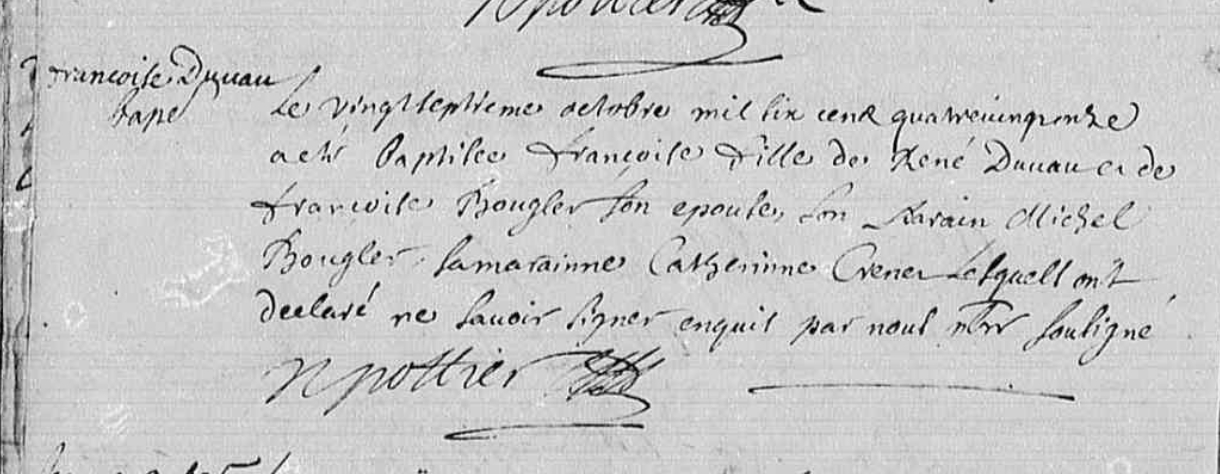 francoise Duuau
bapt
Le vingtseptieme octobre mil six cent quatrevingtonze
a eté baptisee françoise fille de René Duuau et de
françoise Bougler son epouse, son parain Michel
Bougler, sa marainne Catherinne Crener Lesquels ont
declaré ne sauoir signer enquis par nous ptre soussigné
N pottier